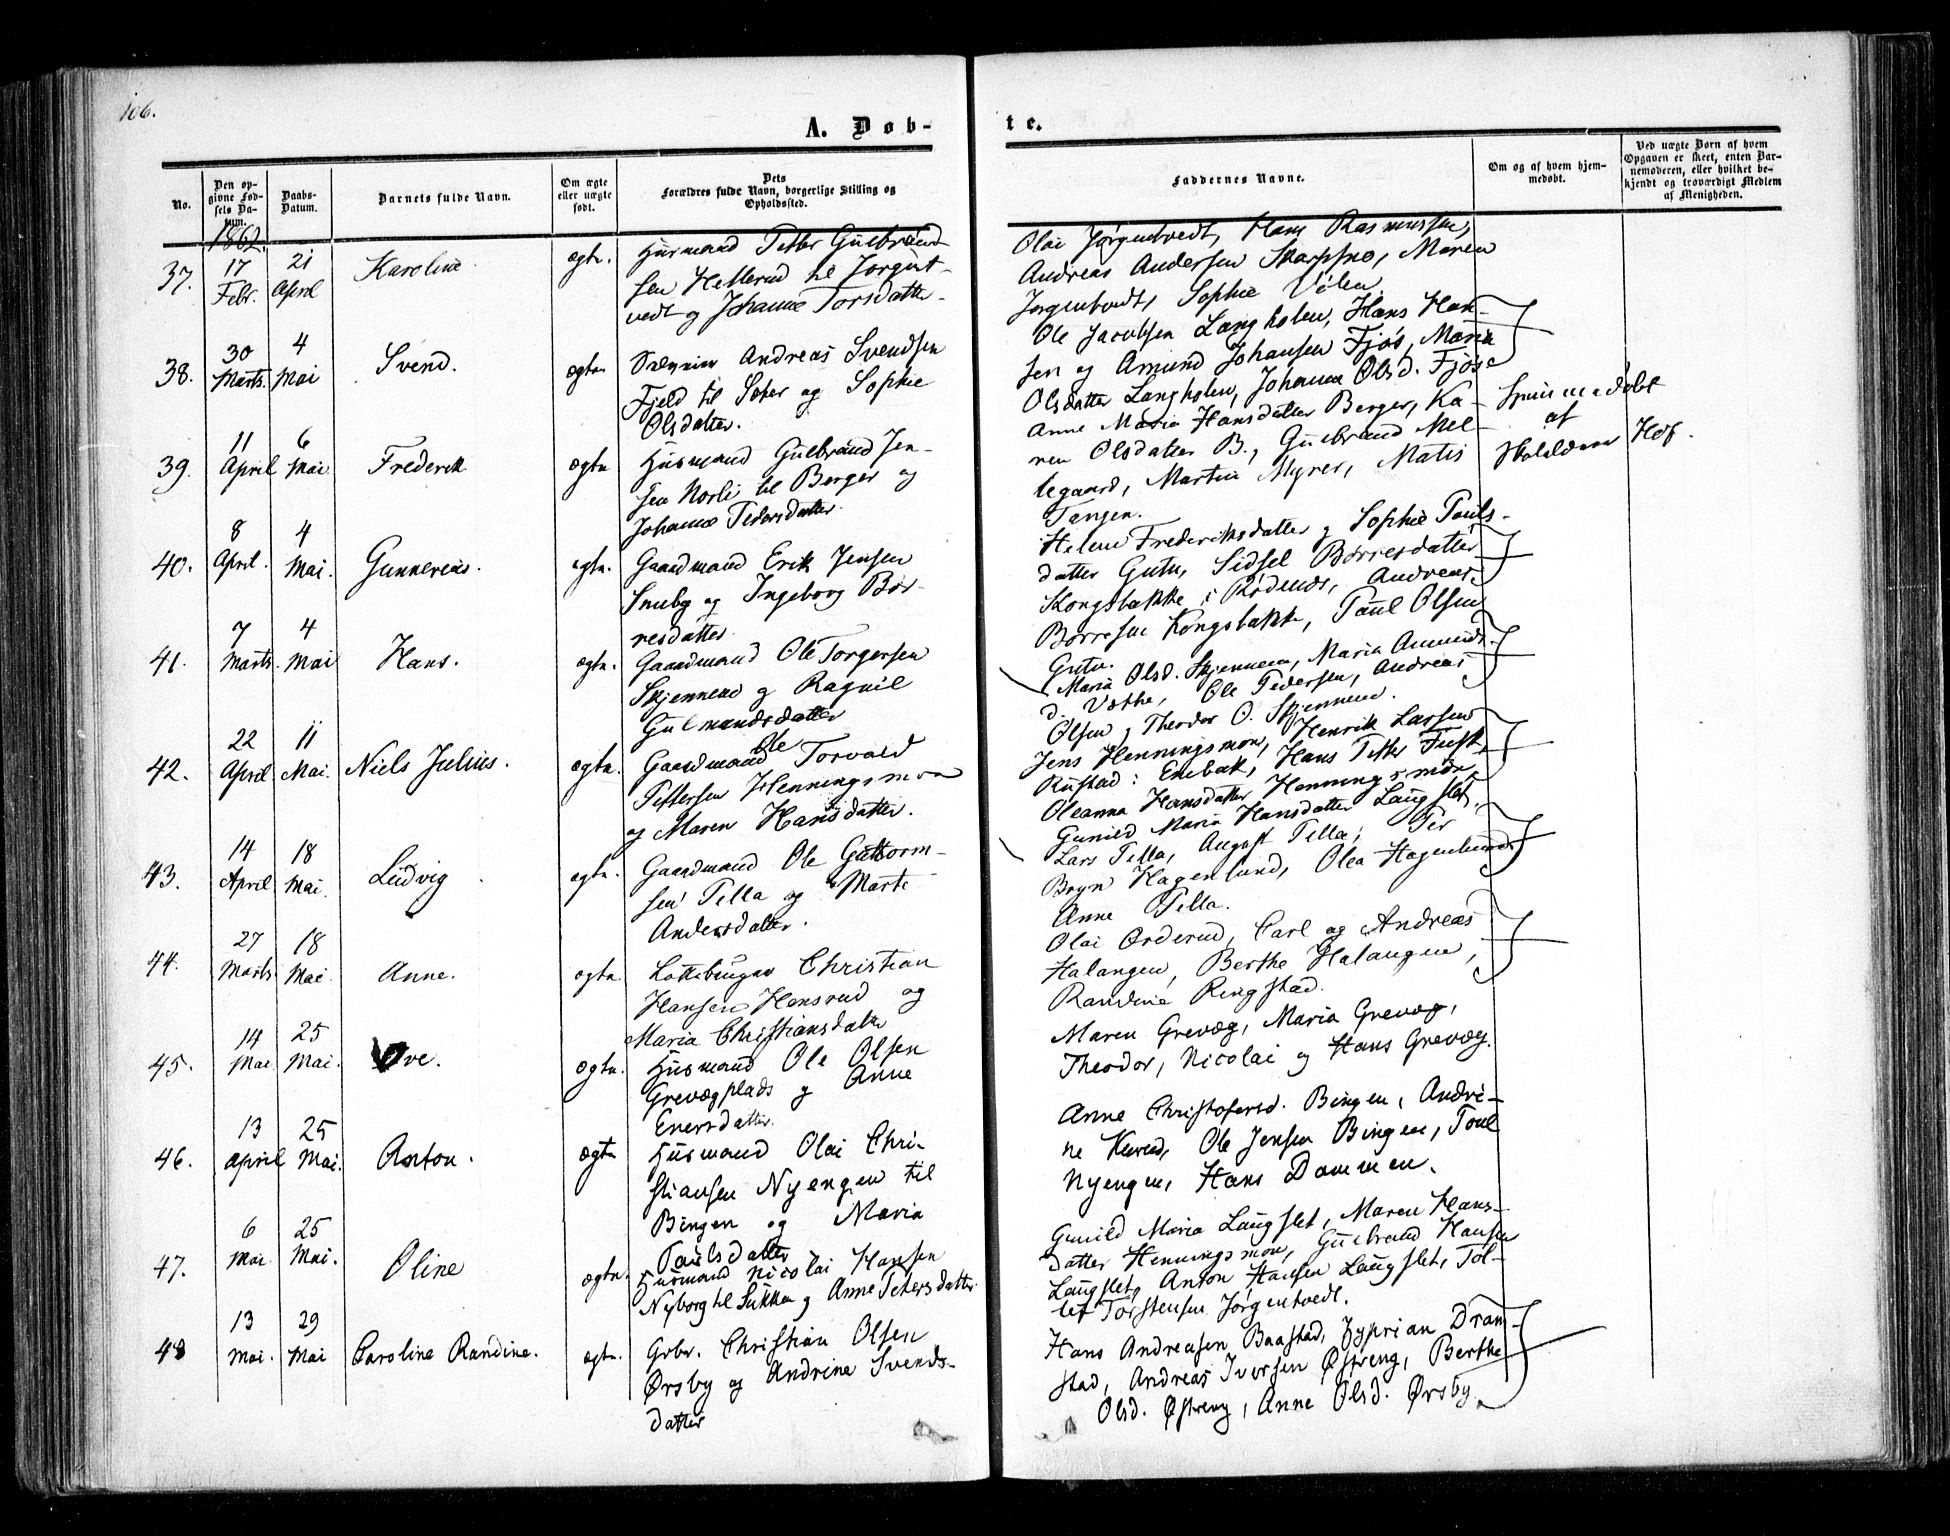 106.
A. Døb-
te.
No.
Den op-
givne Fød-
sels Da-
tum.
Daabs-
Datum.
Barnets fulde Navn.
Om ægte
eller uægte
født.
Dets
Forældres fulde Navn, borgerlige Stilling og
Opholdssted.
Faddernes Navne.
Om og af hvem hjem-
medøbt.
Ved uægte Børn af hvem
Opgaven er skeet, enten Bar-
nemoderen, eller hvilket be-
kjendt og troværdigt Medlem
af Menigheden.
1862.
37. 17 Febr. 21 April Karoline. ægte.
Husmand Petter Gulbrand-
sen Hellerud til Jørgut-
vedt og Johanne Torsdatter
Olai Jørgentvedt, Hans Rasmussen,
Andreas Andersen Skarpsno, Maren
Jørgentvedt, Sophie Vølen
38. 30 Marts. 4 Mai Svend. ægte
Andreas Svendsen
Fjeld til Sæter og Sophie
Olsdatter.
Ole Jacobsen Langholen, Hans Han-
sen og Amund Johansen Fjøs, Maria
Olsdatter Langholen, Johanne Olsd. Fjøs
39. 11 April 6 Mai Frederik ægte
Husmand Gulbrand Jen-
sen Norli til Berger og
Johanne Pedersdatter.
Anne Maria Hansdatter Berger, Ka-
ren Olsdatter B., Gulbrand Mel-
legaard, Martin Myrer, Matis
Tangen.
af
Haldden Hof.
40. 8 April. 4 Mai. Gunnereus. ægte.
Gaardmand Erik Jensen
Snuby og Ingeborg Bør-
resdatter.
Helene Frederiksdatter og Sophie Pouls-
datter Gutu, Sidsel Børresdatter
Kongsbakke i Rødenes, Andreas
Børresen Kongsbakke, Paul Olsen
Gutu.
41. 7 Marts. 4 Mai Hans. ægte.
Gaardmand Ole Torgersen
Skjennend og Ragnil
Gulmundsdatter
Maria Olsd. Skjennem, Maria Amunds-
d. Væthe, Ole Pedersen, Andreas
Olsen, Theodor O. Skjennem.
42. 22 April 11 Mai. Niels Julius. ægte.
Gaardmand Ole Torvald
Pettersen Henningsmoen
og Maren Hansdatter.
Jens Henningsmon, Henrik Larsen
Rustad i Enebak, Hans Petter Fusk,
Oleanna Hansdatter Henningsmon,
Gunild Maria Hansdatter Langslet.
43. 14 April 18 Mai. Ludvig. ægte.
Gaardmand Ole Guttorm-
sen Tella og Marte
Andersdatter.
Lars Tella, August Tella, Per
Bryn Hagenlund, Olea Hagenlund
Anne Tella.
44. 27 Marts 18 Mai. Anne. ægte.
Christian
Hansen Hensrud og
Maria Christiansdatter
Olai Orderud, Carl og Andreas
Halangen, Berthe Halangen,
Randine Ringstad.
45. 14 Mai 25 Mai. Ove. ægte.
Husmand Ole Olsen
Grevægplads og Anne
Enersdatter.
Maren Grevæg, Maria Grevæg,
Theodor, Nicolai og Hans Grevæg.
46. 13 April 25 Mai. Anton. ægte
Husmand Olai Chri-
stiansen Nyengen til
Bingen og Maria
Paulsdatter
Anne Christofersd. Bingen, Andri-
ne Kurud, Ole Jensen Bingen, Poul
Nyengen, Hans Dammen.
47. 6 Mai. 25 Mai. Oline ægte.
Husmand Nicolai Hansen
Nyborg til Sukken og Anne Petersdatter
Gunild Maria Langslet, Maren Hans-
datter Henningsmon, Gulbrand Hansen
Langslet, Anton Hansen Langslet, Tol-
lef Torstensen Jørgentvedt.
48 13 Mai. 29 Mai Caroline Randine. ægte.
Grbr. Christian Olsen
Ørsby og Andrine Svends-
datter
Hans Andreasen Baastad, Zyprian Dram-
stad, Andreas Iversen Østreng, Berthe
Olsd. Østreng, Anne Olsd. Ørsby.